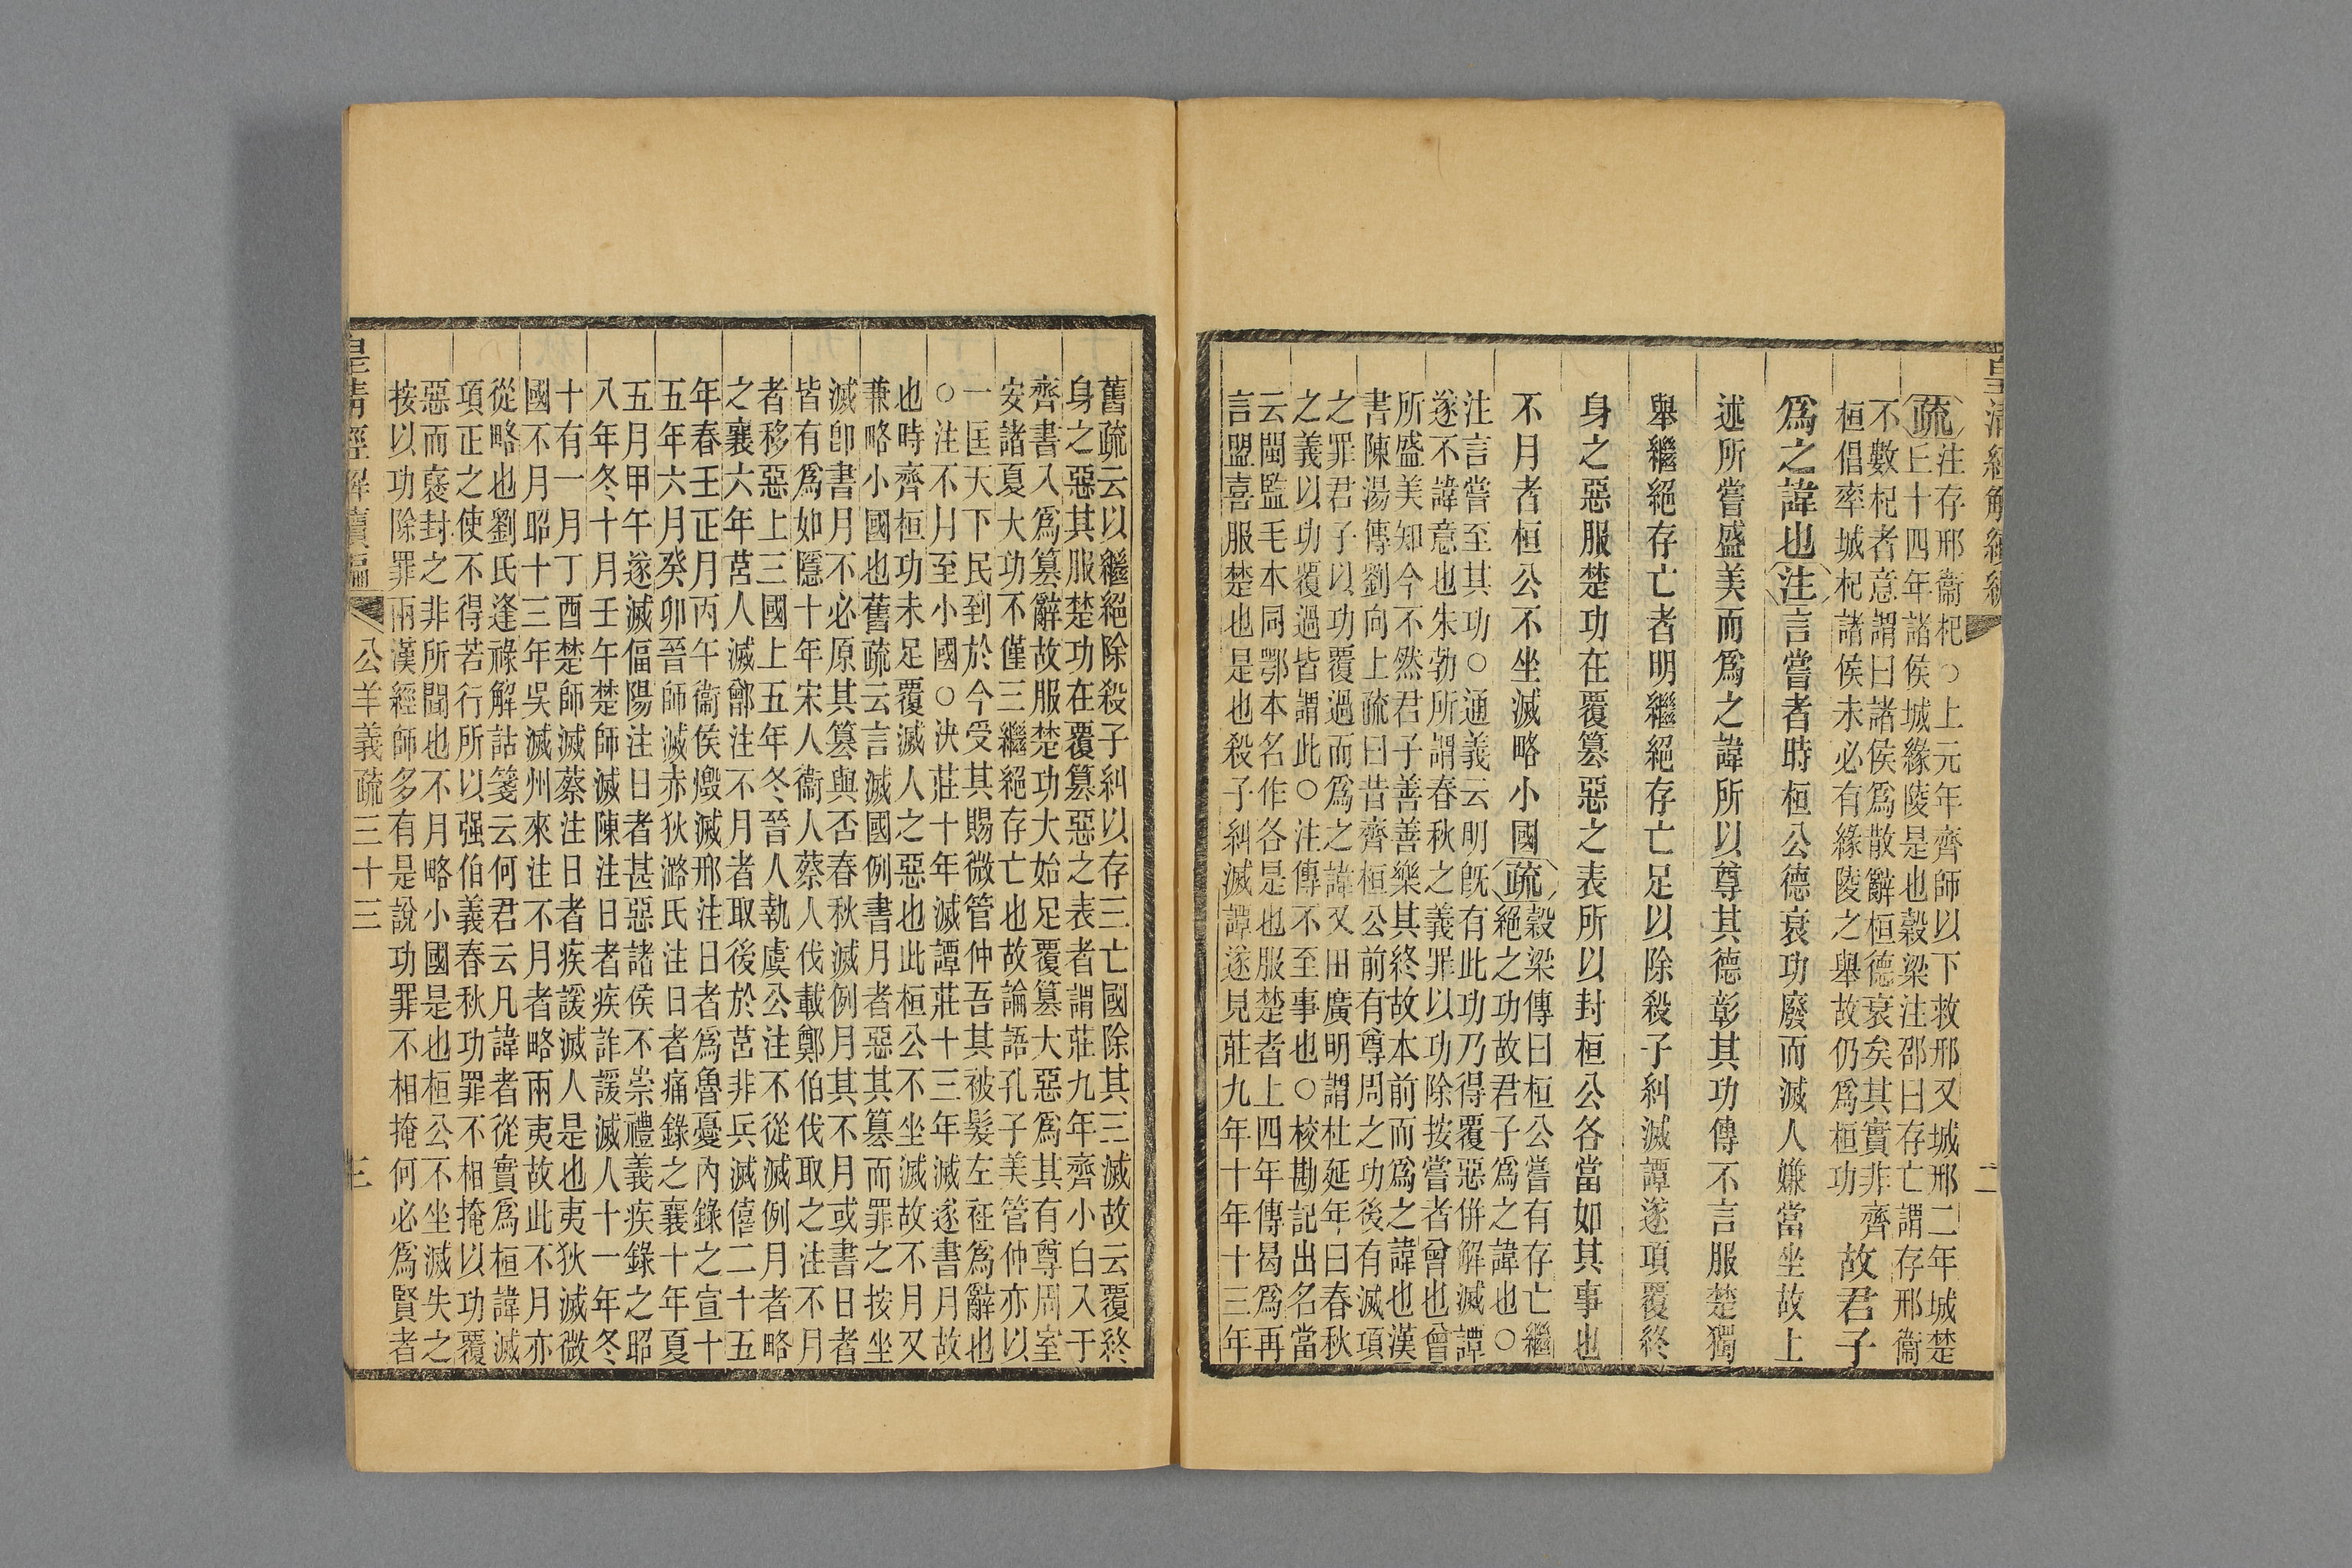 皇清經解續編 二
疏注存邢衞杞○上元年齊師以下救邢又城邢二年城楚
丘十四年諸侯城緣陵是也穀梁注邵曰存亡謂存邢衞
不數杞者意謂曰諸侯爲散辭桓德衰矣其實非齊
桓倡率城杞諸侯未必有緣陵之舉故仍爲桓功故君子
爲之諱也注言嘗者時桓公德衰功廢而滅人嫌當坐故上
述所嘗盛美而爲之諱所以尊其德彰其功傳不言服楚獨
舉繼絕存亡者明繼絕存亡足以除殺子糾滅譚遂項覆終
身之惡服楚功在覆篡惡之表所以封桓公各當如其事也
不月者桓公不坐滅略小國疏穀梁傳曰桓公嘗有存亡繼
絕之功故君子爲之諱也○
注言嘗至其功○通義云明旣有此功乃得覆惡併解滅譚
遂不諱意也朱勃所謂春秋之義罪以功除按嘗者曾也曾
所盛美知今不然君子善善樂其終故本前而爲之諱也漢
書陳湯傳劉向上疏曰昔齊桓公前有尊周之功後有滅項
之罪君子以功覆過而爲之諱又田廣明謂杜延年曰春秋
之義以功覆過皆謂此○注傳不至事也○校勘記出名當
云閩監毛本同鄂本名作各是也服楚者上四年傳曷爲再
言盟喜服楚也是也殺子糾滅譚遂見莊九年十年十三年
舊疏云以繼絕除殺子糾以存三亡國除其三滅故云覆終
身之惡其服楚功在覆篡惡之表者謂莊九年齊小白入于
齊書入爲篡辭故服楚功大始足覆篡大惡爲其有尊周室
安諸夏大功不僅三繼絕存亡也故論語孔子美管仲亦以
一匡天下民到於今受其賜微管仲吾其被髮左衽爲辭也
○注不月至小國○決莊十年滅譚莊十三年滅遂書月故
也時齊桓功未足覆滅人之惡也此桓公不坐滅故不月又
兼略小國也舊疏云言滅國例書月者惡其篡而罪之按坐
滅卽書月不必原其篡與否春秋滅例月其不月或書日者
皆有爲如隱十年宋人衞人蔡人伐載鄭伯伐取之注不月
者移惡上三國上五年冬晉人執虞公注不從滅例月者略
之襄六年莒人滅鄫注不月者取後於莒非兵滅僖二十五
年春王正月丙午衞侯燬滅邢注日者爲魯憂內錄之宣十
五年六月癸卯晉師滅赤狄潞氏注日者痛錄之襄十年夏
五月甲午遂滅偪陽注日者甚惡諸侯不崇禮義疾錄之昭
八年冬十月壬午楚師滅陳注日者疾詐諼滅人十一年冬
十有一月丁酉楚師滅蔡注日者疾諼滅人是也夷狄滅微
國不月昭十三年吳滅州來注不月者略兩夷故此不月亦
從略也劉氏逢祿解詁箋云何君云凡諱者從實爲桓諱滅
項正之使不得若行所以强伯義春秋功罪不相掩以功覆
惡而襃封之非所聞也不月略小國是也桓公不坐滅失之
按以功除罪兩漢經師多有是說功罪不相掩何必爲賢者
皇清經解續編 公羊義疏三十三 三